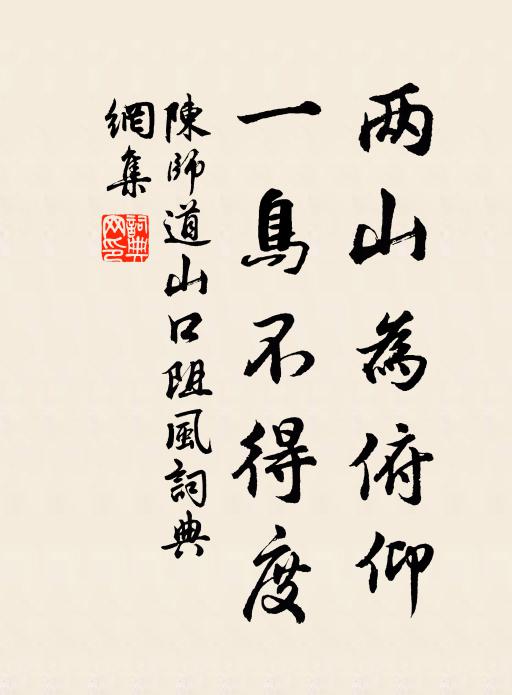 两山為俯仰
一鳥不得度
陳師道山口阻風詞典
網集
詞典
网印